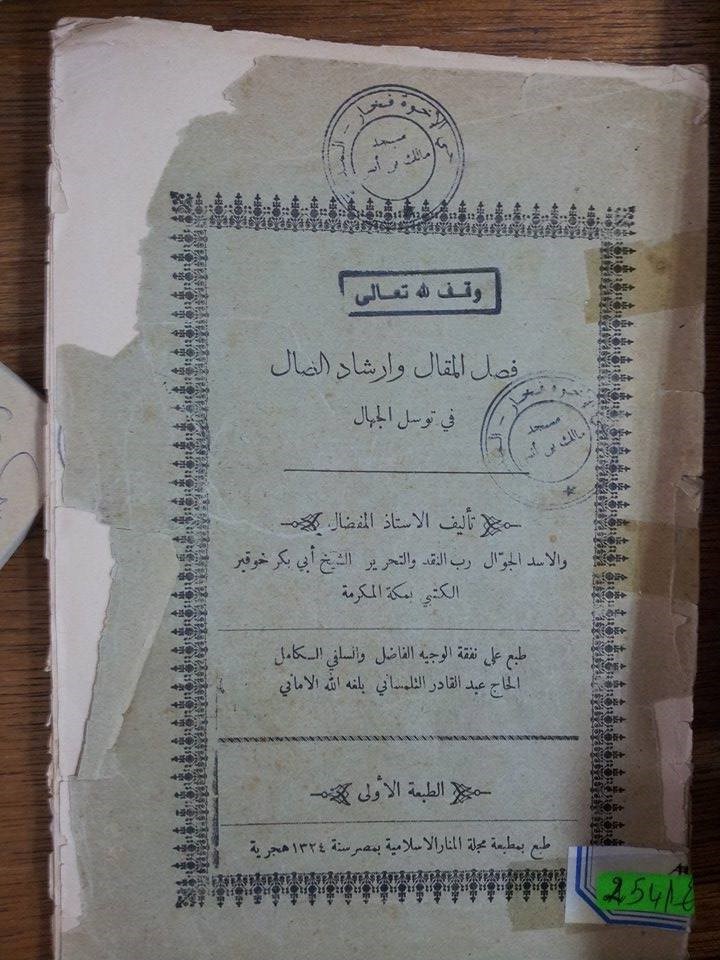 الإخوة فخار
مسجد
مالك بن أنس
وقف لله تعالى
فصل المقال وارشاد الضال
في توسل الجهال
الإخوة فخار
مسجد
مالك بن أنس
تأليف الاستاذ المفضال
والاسد الجوّال رب النقد والتحرير الشيخ أبي بكر خوقير
الكتبي بمكة المكرمة
طبع على نفقة الوجيه الفاضل والسلفي الكامل
الحاج عبد القادر التلمساني بلغه الله الاماني
الطبعة الأولى
طبع بمطبعة مجلة المنار الاسلامية بمصر سنة ١٣٢٤ هجرية